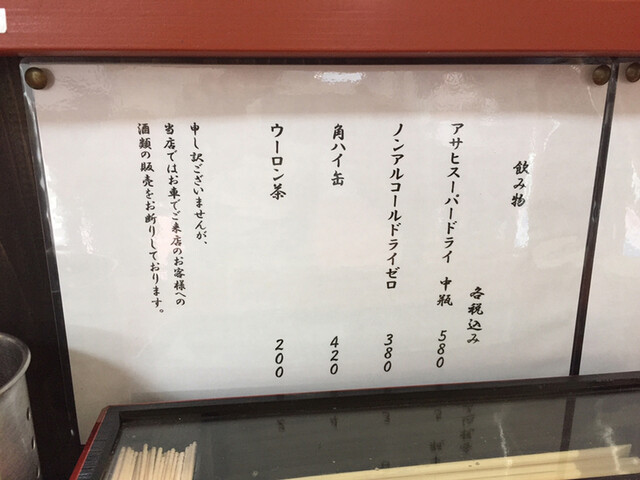 飲み物
各税込み
アサヒスーパードライ 中瓶 580
ノンアルコールドライゼロ 380
角ハイ缶 420
ウーロン茶 200
申し訳ございませんが、
当店ではお車でご来店のお客様への
酒類の販売をお断りしております。